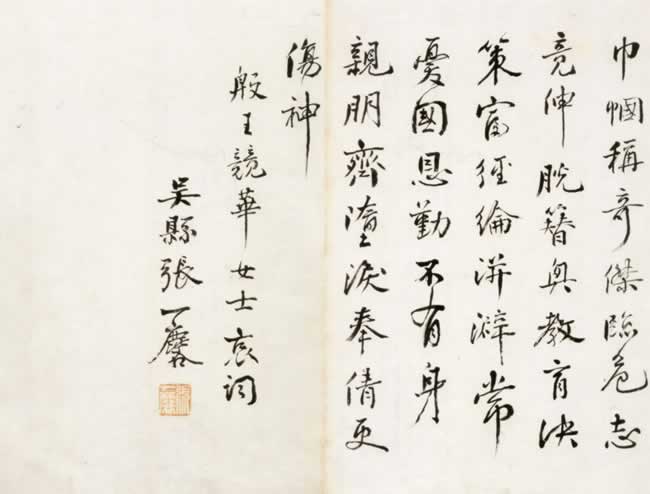 巾幗稱奇傑臨危志
竟伸脱簪興教育決
策富經綸洴澼常
憂國恩勤不有身
親朋齊墮淚奉倩更
傷神
殷王競華女士哀詞
吳縣張一麐